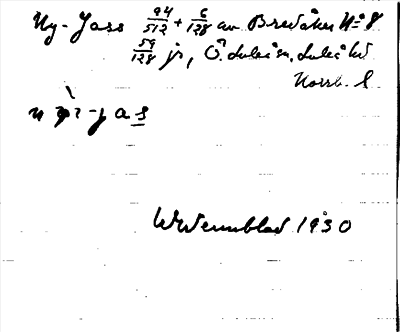 Ny-Jass 94/512 + 6/128 av Bredåker N:o 8
59/128 js, Ö. Luleå sn, Luleå hd
Norrb. l
W Wennblad 1930